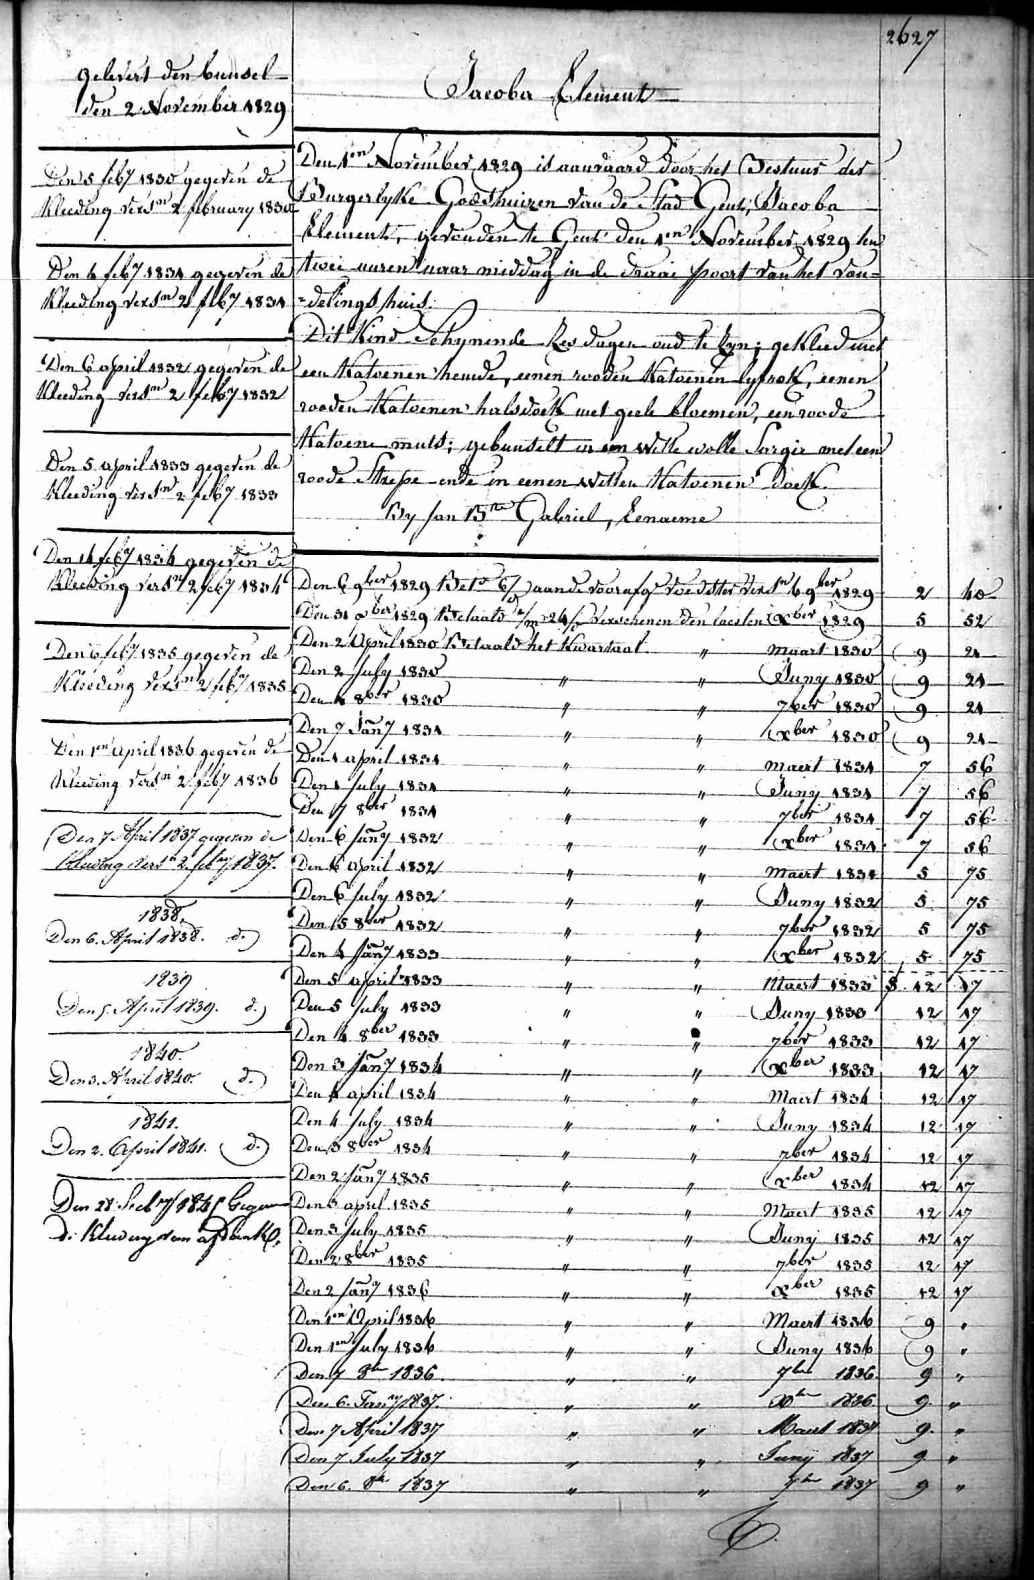 2627
gelevert den bunsel
den 2 November 1829
Den 5 feby 1830 gegeven de
kleeding vers.n 2 february 1830
Den 4 feby 1831 gegeven de
kleeding vers.n 2 feby 1831
Den 6 april 1832 gegeven de
kleeding vers.n 2 feby 1832
Den 5 april 1833 gegeven de
kleeding vers.n 2 feby 1833
Den 14 feby 1834 gegeven de
kleeding vers.n 2 feby 1834
Den 6 feby 1835 gegeven de
kleeding vers.n 2 feby 1835
Den 1en april 1836 gegeven de
kleeding vers.n 2 feby 1836
Den 7 April 1837 gegeven de
kleeding vers.n 2 feby 1837.
1838.
Den 6. April 1838. d.)
1839
Den 5. April 1839. d.)
1840.
Den 3. April 1840. d.)
1841.
Den 2. April 1841. d.)
Den 28 Feby 184 Gegeven
de kleding
Jacoba Element
Den 1en November 1829 is aanvaard door het Bestuur der
Burgerlyke Godshuizen van de Stad Gent, Jacoba
Element, gevonden te Gent den 1en November 1829 ten
twee uuren naar middag in de draai poort van het von=
=delingshuis.
Dit Kind Schynende zes dagen oud te zyn; gekleed met
een Katoenen hemde, eenen rooden Katoenen lyfrok, eenen
rooden Katoenen halsdoek met geele bloemen, een roode
Katoene muts; gebunselt in een witte wolle Sargie met een
roode Strepe ende in eenen witten Katoenen doek.
By Jan Bte Gabriel, Eenaeme
Den 6 9ber 1829 Bet.d aan de voorafg voedster vers.n 6 9ber 1829 2 40
Den 31 xber 1829 Betaald Verschenen den laesten xber 1829 5 52
Den 2 April 1830 Betaald het Kwartaal " maart 1830 9 21
Den 2 July 1830 " " Juny 1830 9 21
Den 1 8ber 1830 " " 7ber 1830 9 21
Den 7 Jany 1831 " " xber 1830 9 21
Den 1 april 1831 " " maert 1831 7 56
Den 1 July 1831 " " Juny 1831 7 56
Den 7 8ber 1831 " " 7ber 1831 7 56
Den 6 Jany 1832 " " xber 1831 7 56
Den 6 april 1832 " " Maert 1832 5 75
Den 6 July 1832 " " Juny 1832 5 75
Den 15 8ber 1832 " " 7ber 1832 5 75
Den 4 Jany 1833 " " xber 1832 5 75
Den 5 april 1833 " " Maert 1833 12 17
Den 5 July 1833 " " Juny 1833 12 17
Den 4 8ber 1833 " " 7ber 1833 12 17
Den 3 Jany 1834 " " xber 1833 12 17
Den 4 april 1834 " " Maert 1834 12 17
Den 4 July 1834 " " Juny 1834 12 17
Den 3 8ber 1834 " " 7ber 1834 12 17
Den 2 Jany 1835 " " xber 1834 12 17
Den 3 april 1835 " " Maert 1835 12 17
Den 3 July 1835 " " Juny 1835 12 17
Den 2 8ber 1835 " " 7ber 1835 12 17
Den 2 Jany 1836 " " xber 1835 12 17
Den 1en April 1836 " " Maert 1836 9 "
Den 1en July 1836 " " Juny 1836 9 "
Den 7 8ber 1836 " " 7ber 1836 9 "
Den 6. Jany 1837. " " xber 1836 9. "
Den 7 April 1837 " " Maert 1837 9. "
Den 7 July 1837 " " Juny 1837 9 "
Den 6. 8ber 1837 " " 7ber 1837 9 "